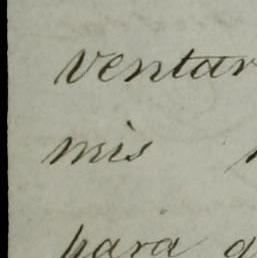 ventar
mis
para q